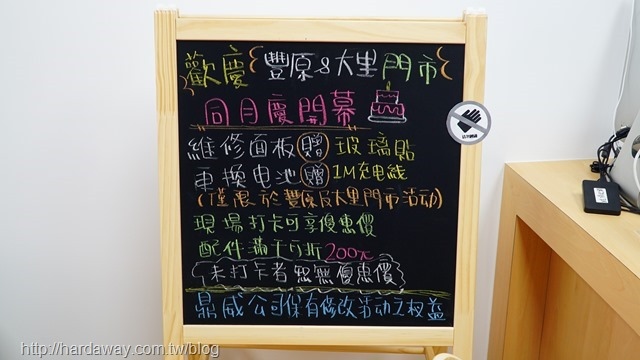 歡慶豐原&大里門市
同月慶開幕
維修面板贈玻璃貼
更換电池贈1M充电線
(僅限於豐原及大里門市活動)
現場打卡可享優惠價
配件滿千可折200元
未打卡者恕無優惠價
鼎威公司保有修改活动之权益
http://hardaway.com.tw/blog